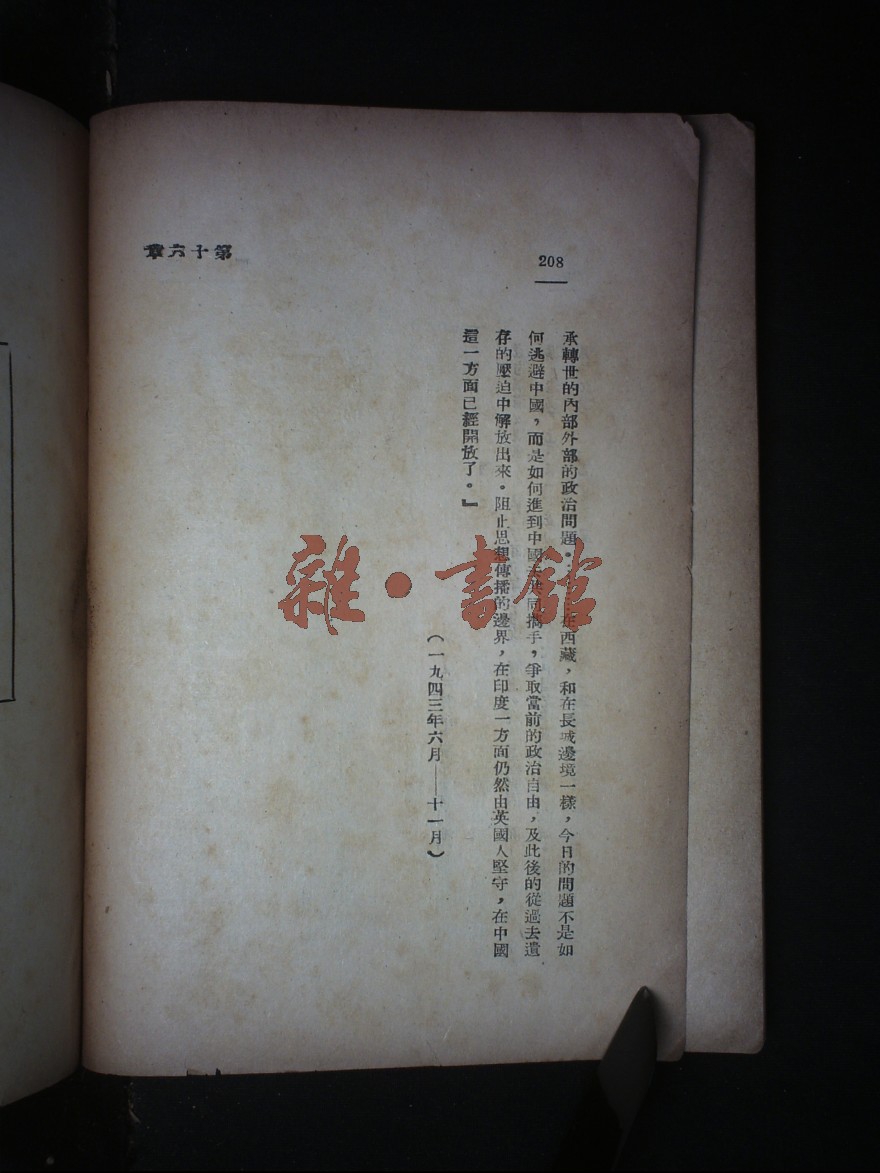 208
第十六章
承轉世的內部外部的政治問題。在西藏，和在長城邊境一樣，今日的問題不是如
何逃避中國，而是如何進到中國去共同攜手，爭取當前的政治自由，及此後的從過去遺
存的壓迫中解放出來。阻止思想傳播的邊界，在印度一方面仍然由英國人堅守，在中國
這一方面已經開放了。』
（一九四三年六月——十一月）
雜·書館